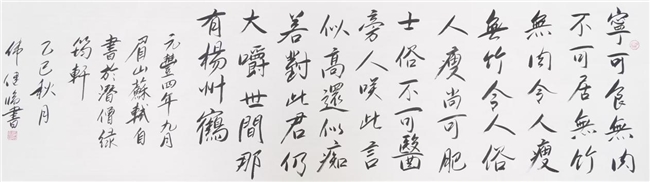 寧可食無肉
不可居無竹
無肉令人瘦
無竹令人俗
人瘦尚可肥
士俗不可醫
旁人咲此言
似高還似痴
若對此君仍
大嚼世間那
有楊州鶴
元豐四年九月
眉山蘇軾自
書於潛僧綠
筠軒
乙巳秋月
臨書